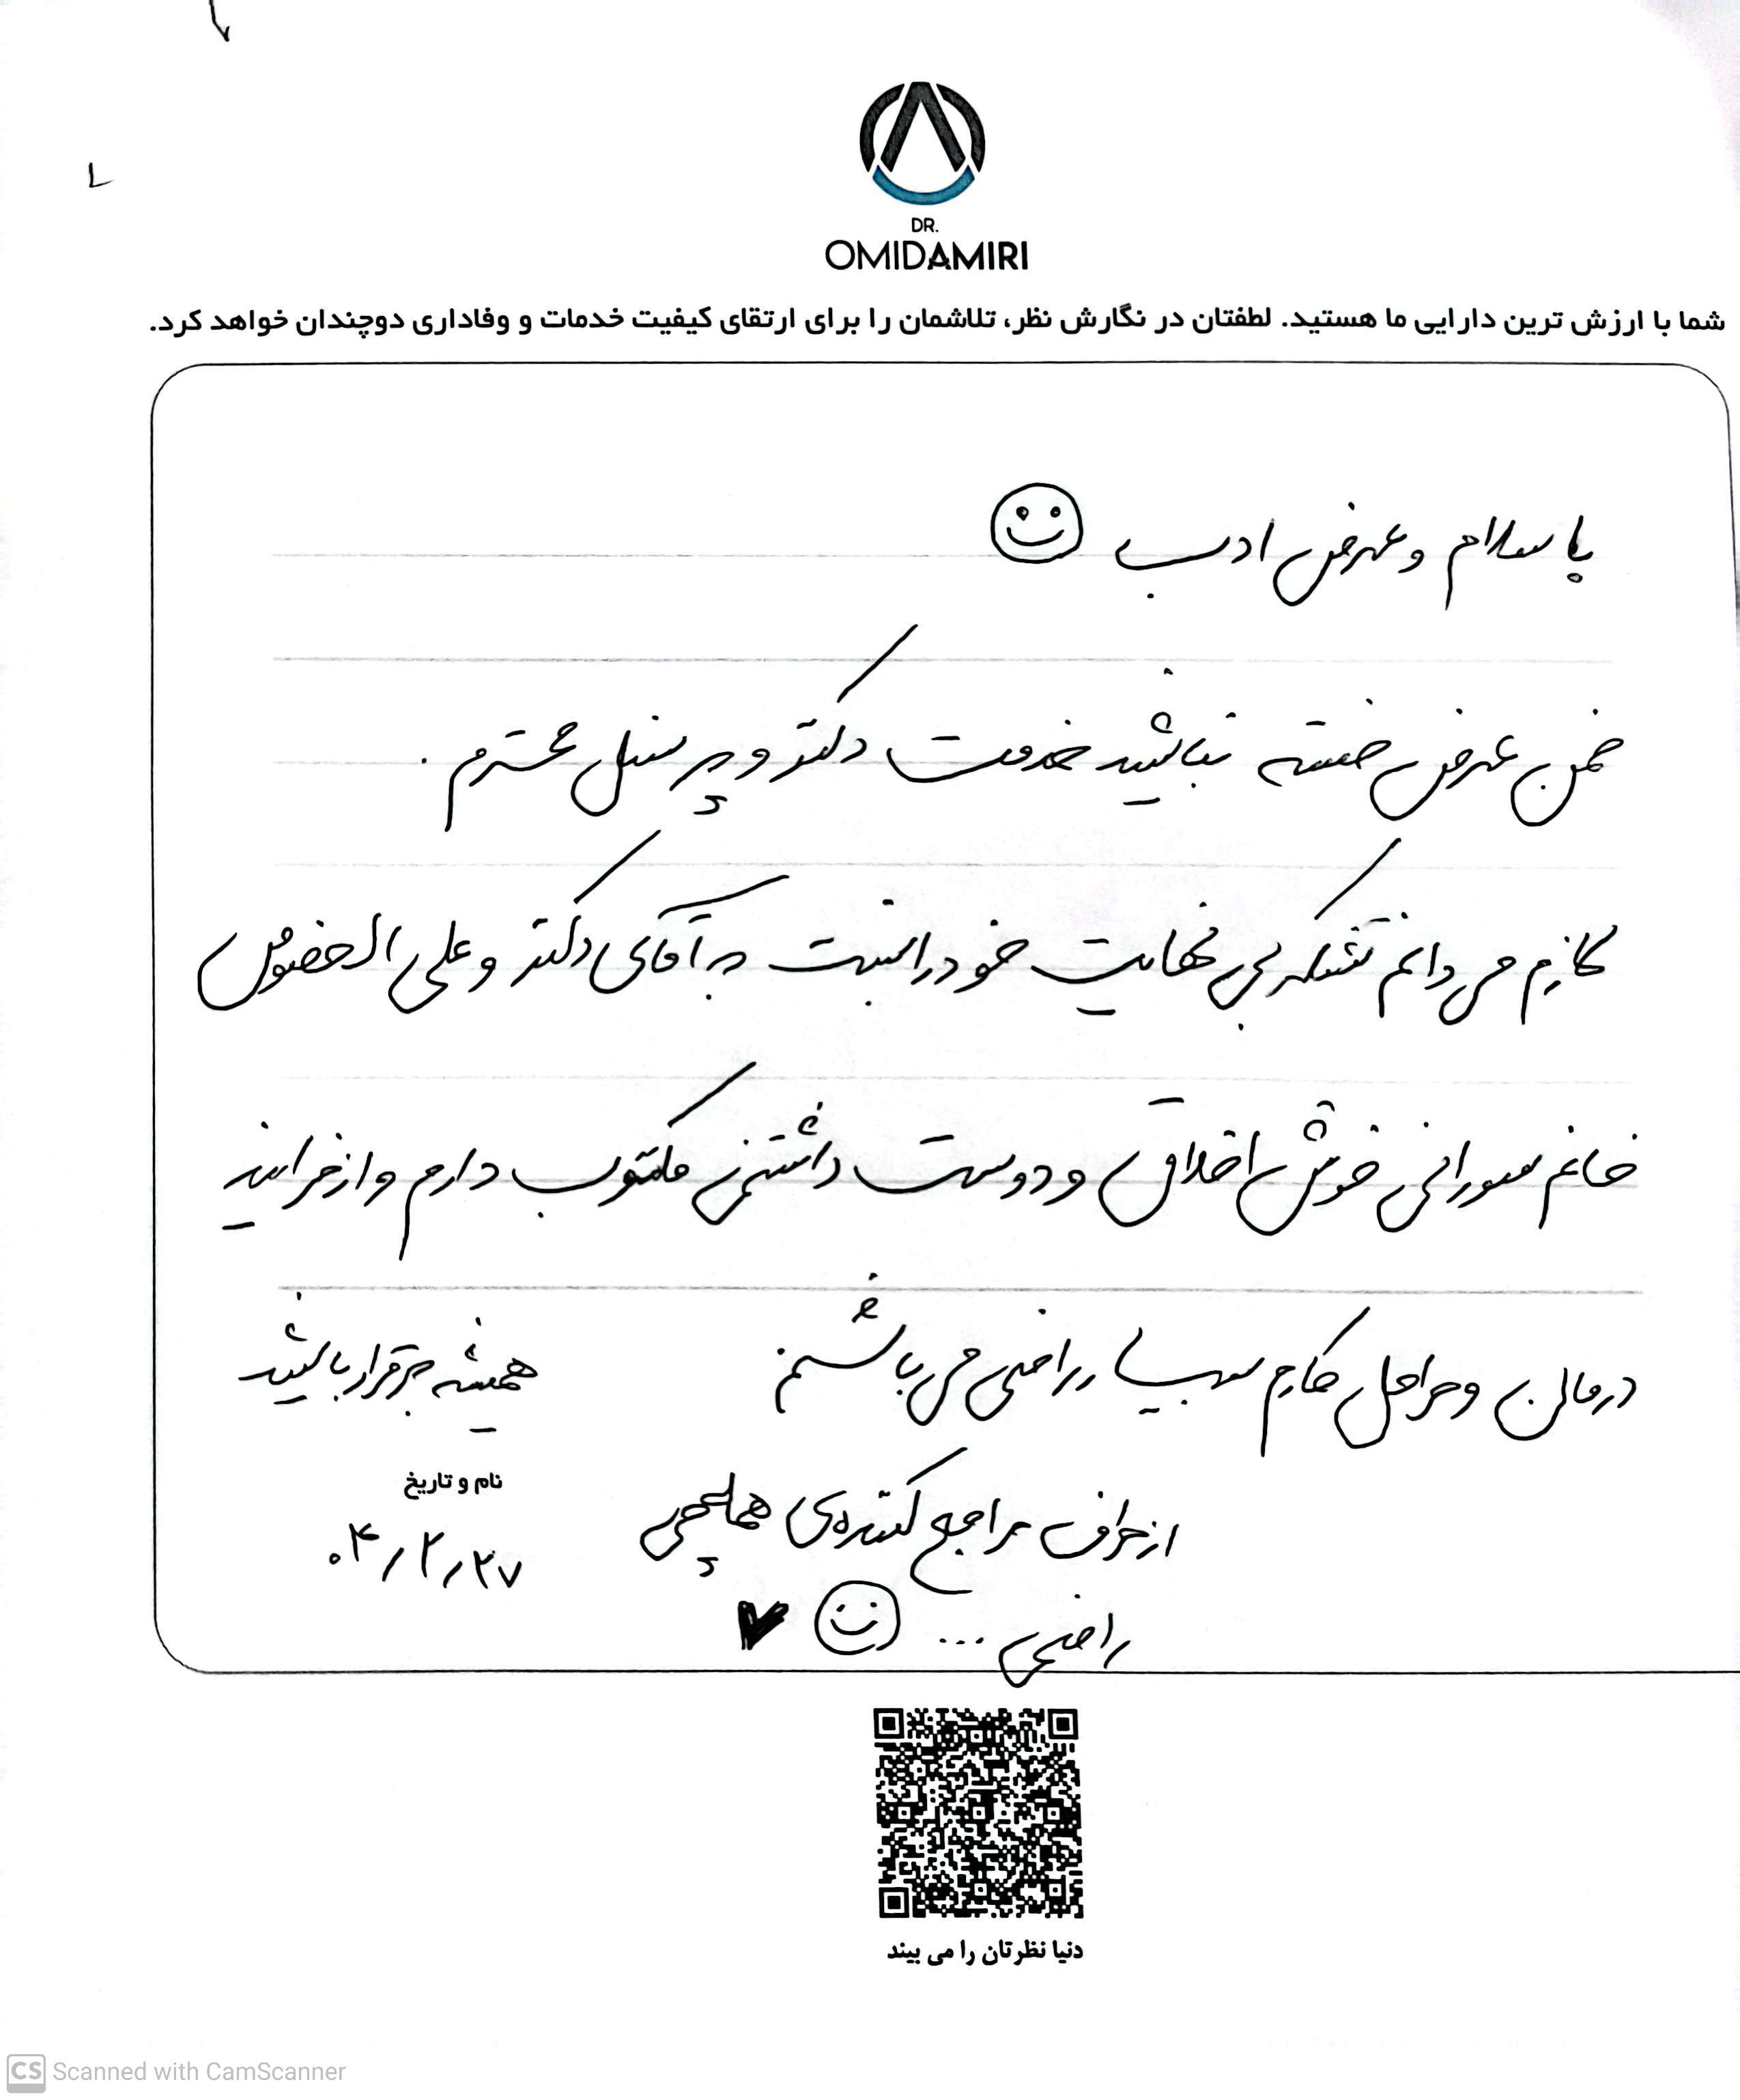 DR.
OMIDAMIRI
شما با ارزش ترین دارایی ما هستید. لطفتان در نگارش نظر، تلاشمان را برای ارتقای کیفیت خدمات و وفاداری دوچندان خواهد کرد.
با سلام و عرض ادب
ضمن عرض خسته نباشید خدمت دکتر و پرسنل محترم.
لازم می دانم تشکر بی نهایت خود را نسبت به آقای دکتر و علی الخصوص
خانم سورانی خوش اخلاق و دوست داشتنی مکتوب دارم و از فرایند
درمان و مراحل کارم بسیار راضی می باشم
همیشه برقرار باشید
نام و تاریخ
از طرف مراجع کننده‌ی همچی
راضی ...
۰۴/۲/۲۷
دنیا نظرتان را می بیند
CS Scanned with CamScanner